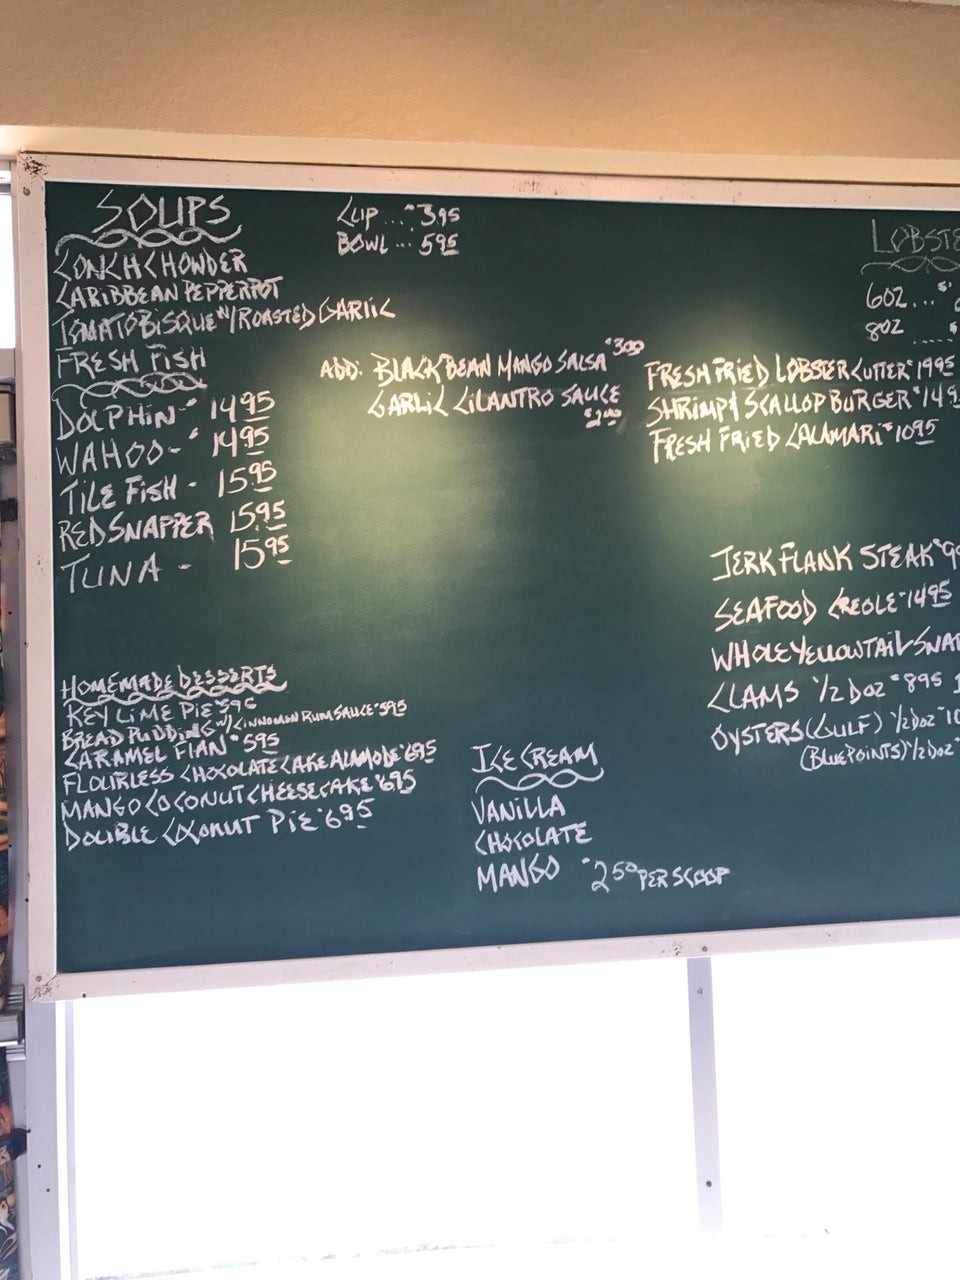 SOUPS
CUP ... $3.95
BOWL ... 5.95
CONCH CHOWDER
CARIBBEAN PEPPERPOT
TOMATO BISQUE W/ROASTED GARLIC
FRESH FISH
DOLPHIN - $14.95
WAHOO - $14.95
TILE FISH - 15.95
RED SNAPPER 15.95
TUNA - 15.95
ADD: BLACK BEAN MANGO SALSA $3.00
GARLIC CILANTRO SAUCE
$2.00
LOBSTE
6OZ ... $
8OZ ..... $
FRESH FRIED LOBSTER CUTTER $19.95
SHRIMP & SCALLOP BURGER $14.9
FRESH FRIED CALAMARI $10.95
JERK FLANK STEAK $9
SEAFOOD CREOLE $14.95
WHOLE YELLOWTAIL SNA
CLAMS 1/2 DOZ $8.95
OYSTERS (GULF) 1/2 DOZ $10
(BLUEPOINTS) 1/2 DOZ $
HOMEMADE DESSERTS
KEY LIME PIE $5.95
BREAD PUDDING W/CINNOMON RUM SAUCE $5.95
CARAMEL FLAN $5.95
FLOURLESS CHOCOLATE CAKE ALAMODE $6.95
MANGO COCONUT CHEESECAKE $6.95
DOUBLE COCONUT PIE $6.95
ICE CREAM
VANILLA
CHOCOLATE
MANGO $2.50 PER SCOOP